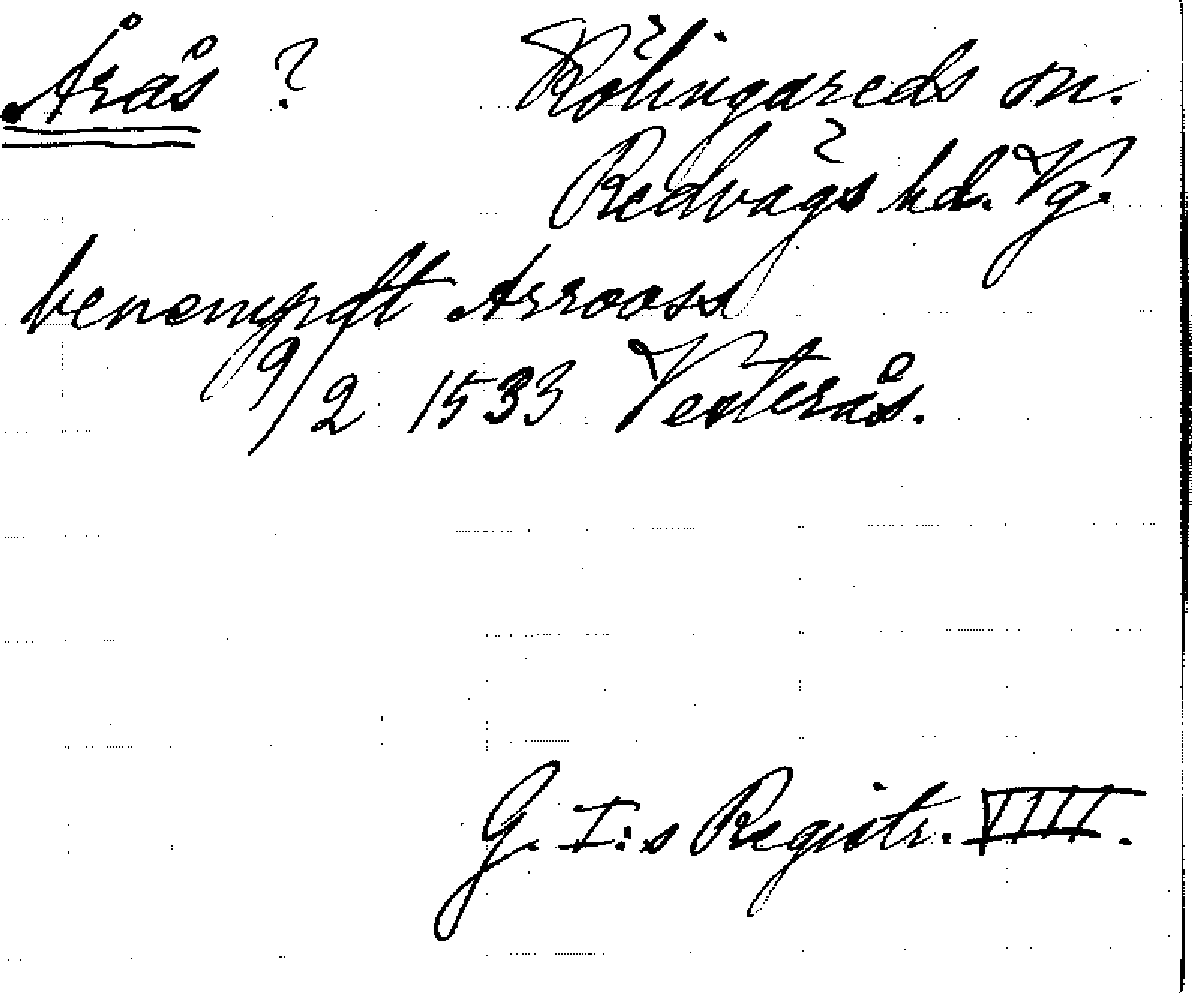 Årås ? Kölingareds sn.
Redvägs hd. Vg.
benempdt Arrooss
9/2 1533 Vesterås.
G. I:s Registr. VIII.